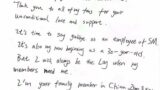 Thank you to all of you for your
unconditional love and support.
It's time to say goodbye as an employee of SM.
It's also my new beginning as a 30-year-old.
But I will always be the Lay when my
members need me.
I'am your family member in China